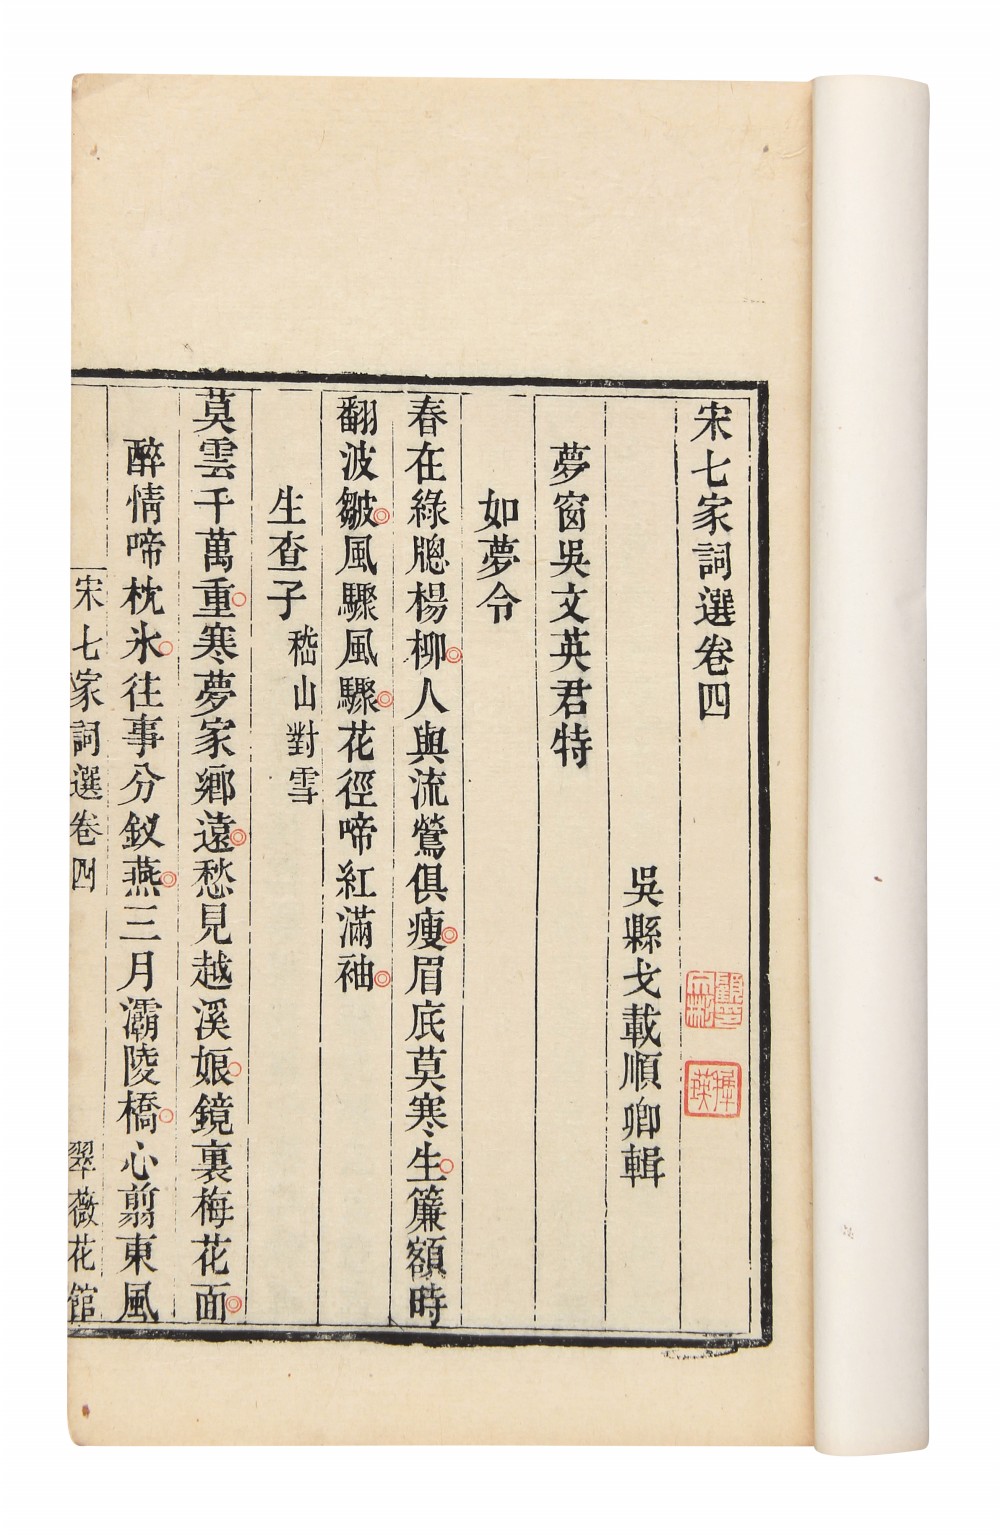 宋七家詞選卷四
吳縣戈載順卿輯
夢窗吳文英君特
如夢令
春在綠牕楊柳人與流鶯俱瘦眉底莫寒生簾額時
翻波皺風驟風驟花徑啼紅滿袖
生查子 嵇山對雪
莫雲千萬重寒夢家鄉遠愁見越溪娘鏡裏梅花面
醉情啼枕氷往事分釵燕三月灞陵橋心翦東風
宋七家詞選卷四 翠薇花館